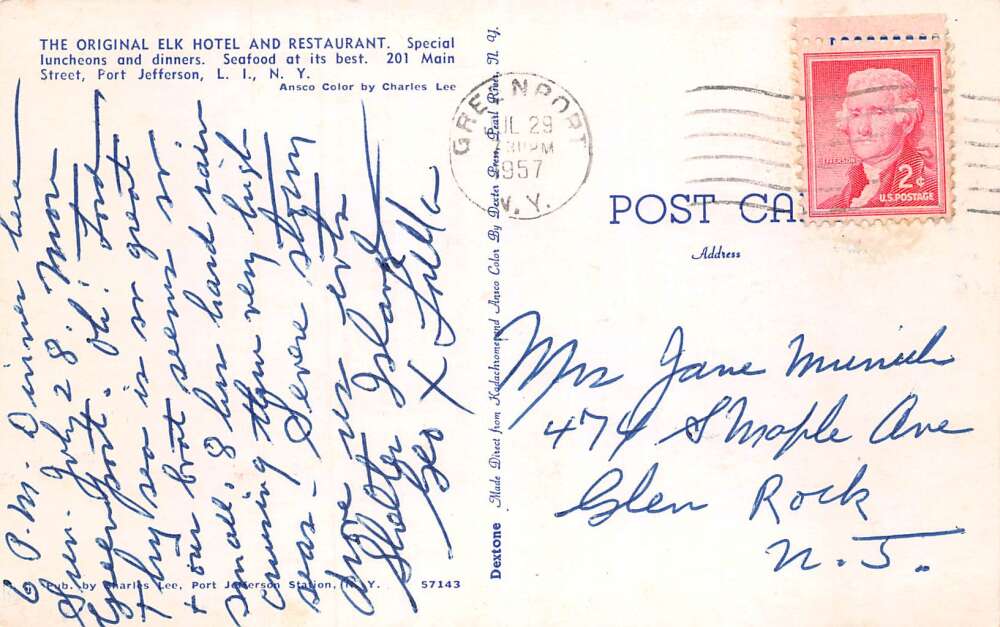 THE ORIGINAL ELK HOTEL AND RESTAURANT. Special
luncheons and dinners. Seafood at its best. 201 Main
Street, Port Jefferson, L. I., N. Y.
Ansco Color by Charles Lee
6 P.M. Dinner here
Sun. July 28 Mon
Greenport. Oh! Lord
thy sea is so great
+ our boat seems so
small. 8 hrs hard rain
cruising thru very high
seas - Severe storm
drove us into
Shelter Island
Geo X Lilla
Pub. by Charles Lee, Port Jefferson Station, N. Y. 57143
Dextone Made Direct from Kodachrome and Ansco Color By Dexter Press, Pearl River, N. Y.
GREENPORT
JUL 29
30 PM
1957
N. Y.
JEFFERSON
2¢
U.S. POSTAGE
POST CA
Address
Mrs Jane Munich
474 S Maple Ave
Glen Rock
N. J.